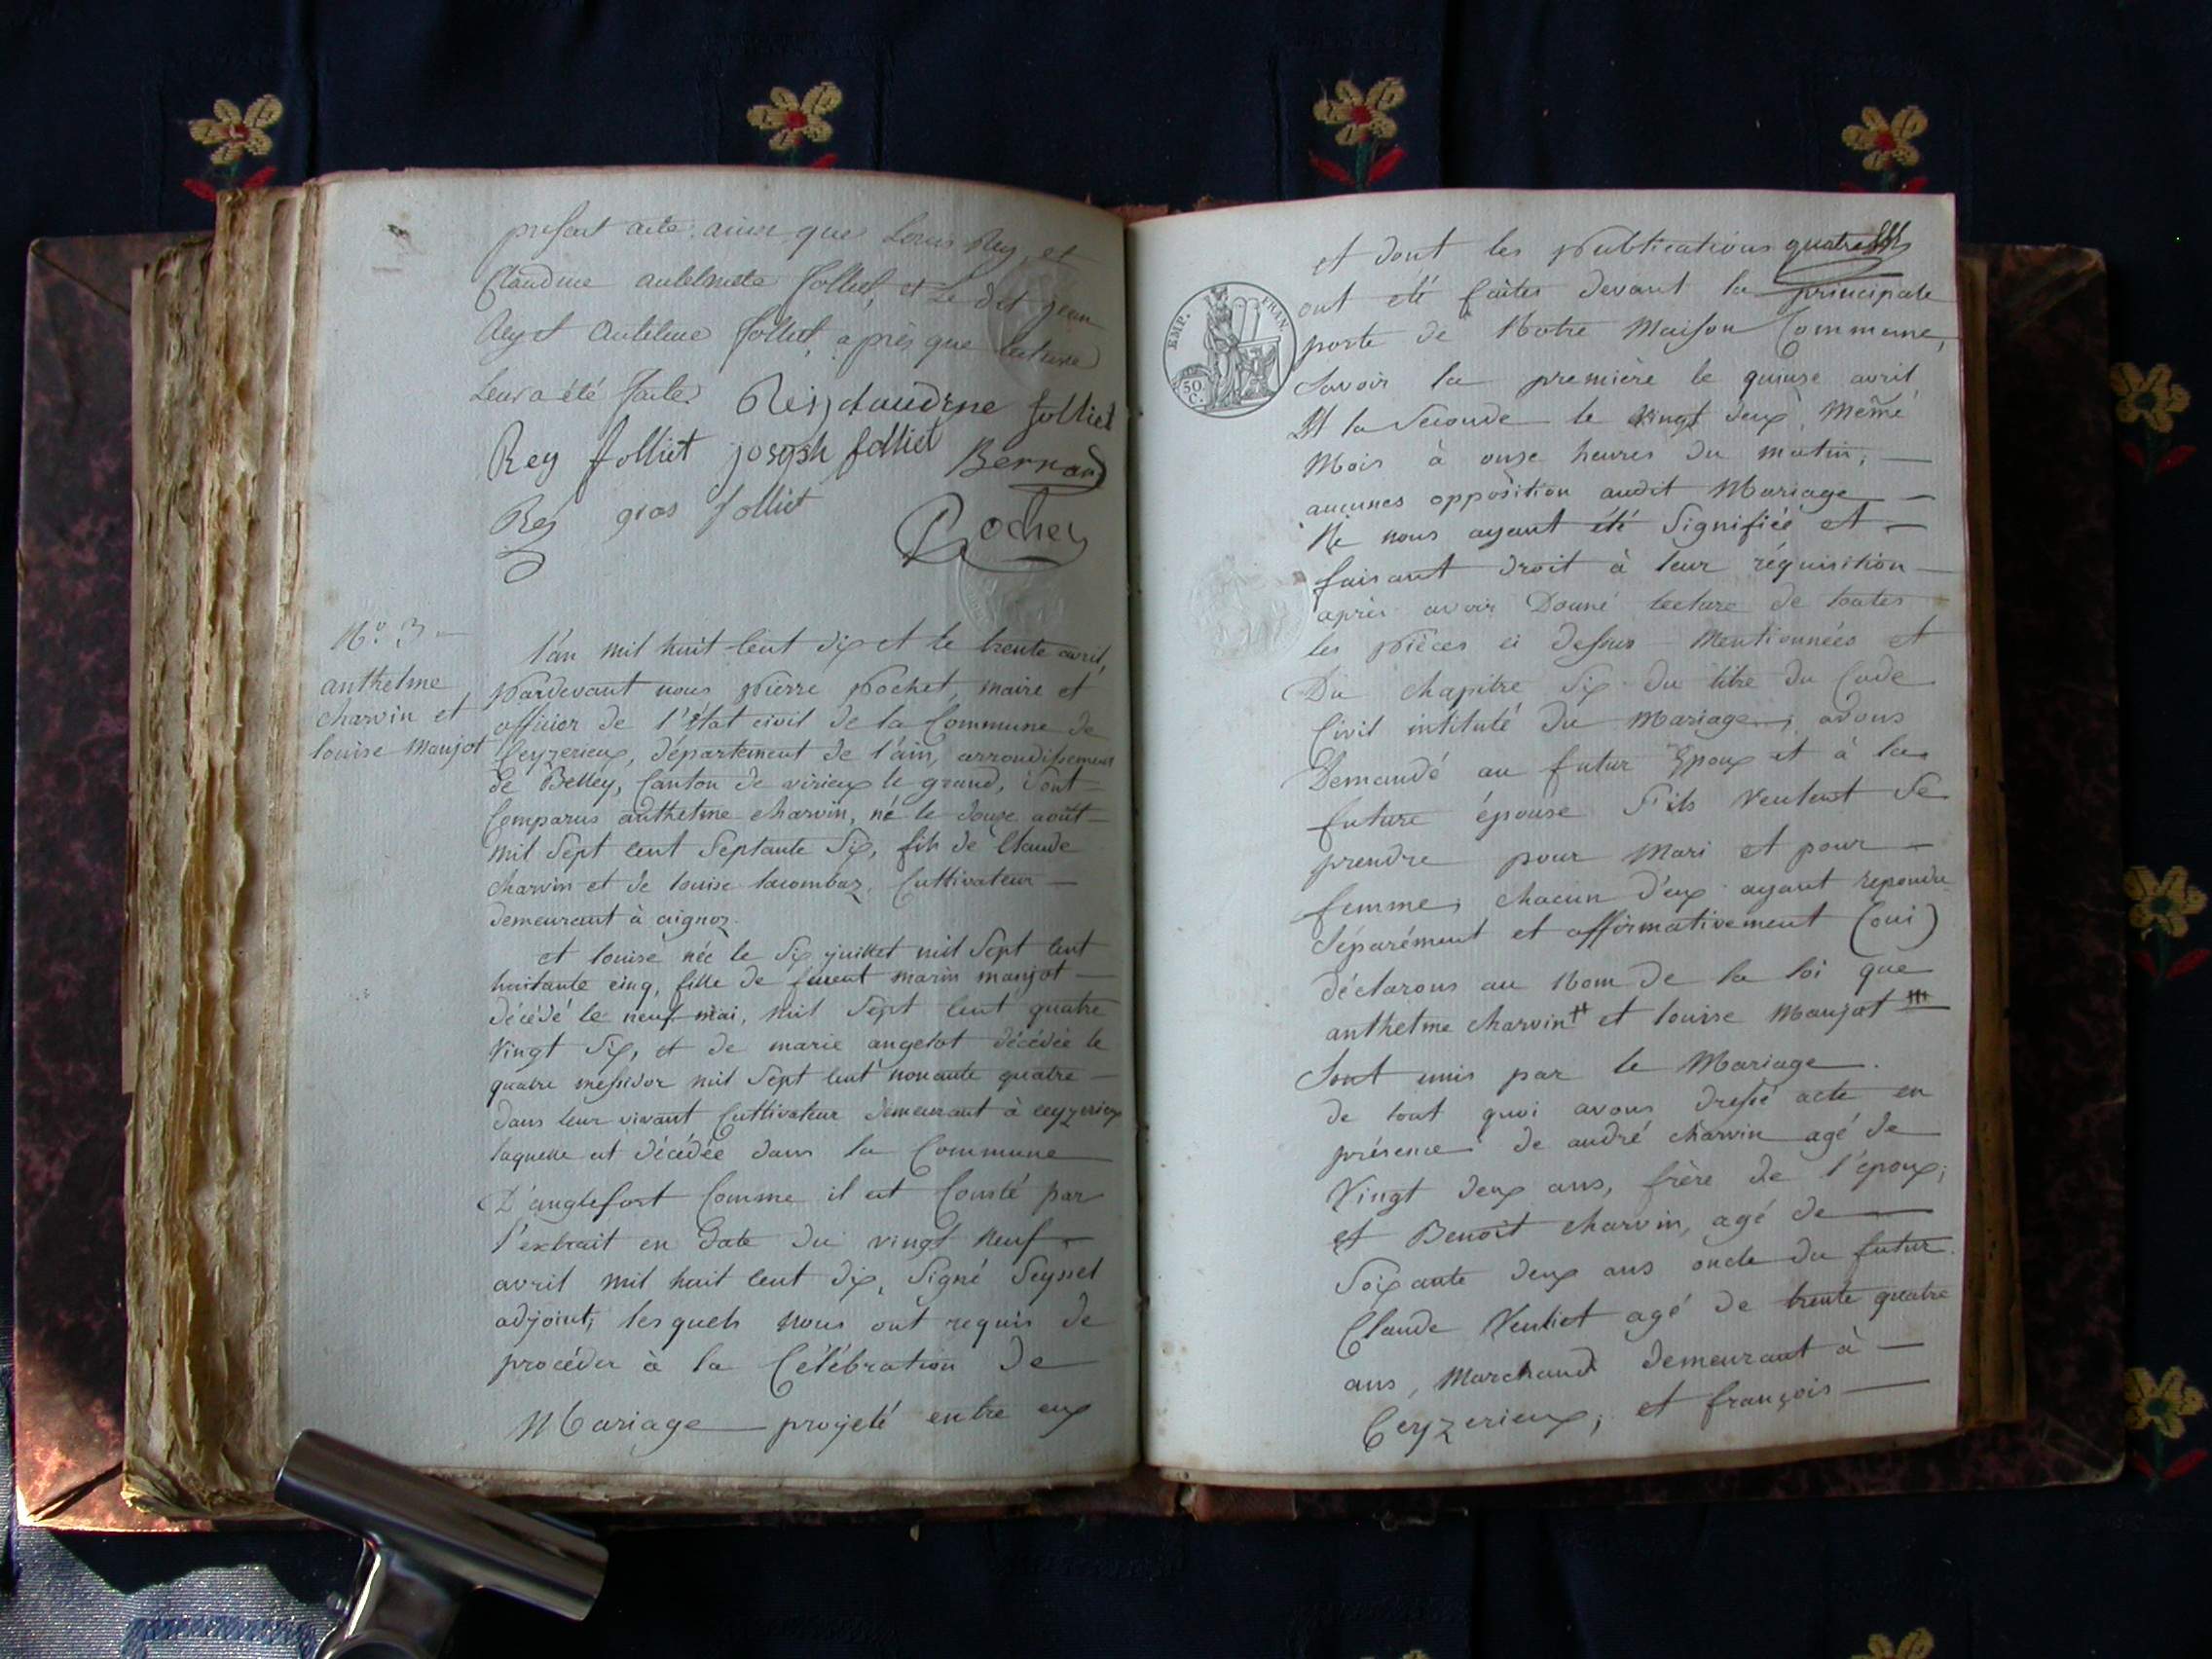 présent acte, ainsi que Louis Rey, et
Claudine anthelmete folliet, et Le dit jean
Rey et Antelme folliet, après que lecture
Leur a été faite Rey claudine folliet
Rey folliet joseph folliet Bernard
Rey gros folliet
Pochet
N.º 3
anthelme
charvin et
louise Maujot
l'an mil huit cent dix et le trente avril,
Pardevant nous Pierre Pochet, maire et
officier de l'état civil de la Commune de
Ceyzerieux, département de l'ain, arrondissement
de Belley, Canton de virieux le grand, sont
Comparus anthelme charvin, né le douze août
mil sept cent septante six, fils de Claude
charvin et de louise lacombaz, Cultivateur
demeurant à aignoz
et louise née le six juillet mil sept cent
huitante cinq, fille de furent marin maujot
décédé le neuf mai, mil sept cent quatre
vingt six, et de marie angelot décédée le
quatre messidor mil sept cent nonante quatre
dans leur vivant Cultivateur demeurant à ceyzerieux
laquelle est décédée dans la Commune
D'anglefort Comme il est Consté par
l'extrait en date du vingt neuf
avril mil huit cent dix, signé Seyssel
adjoint, lesquels nous ont requis de
procéder à la Célébration de
Mariage projeté entre eux
EMP. FRAN.
50 C.
et dont les Publications quatre
ont été faites devant la principale
porte de Notre Maison Commune,
savoir la première le quinze avril
Et la seconde le vingt deux même
Mois à onze heures du matin;
aucunes opposition audit Mariage
Ne nous ayant été signifiée et
faisant droit à leur réquisition
après avoir Donné lecture de toutes
les Pièces ci dessus Mentionnées et
Du chapitre six du titre du Code
Civil intitulé du Mariage, avons
Demandé au futur Epoux et à la
future épouse s'ils veulent se
prendre pour Mari et pour
femme, chacun d'eux ayant repondu
séparément et affirmativement (oui)
déclarons au Nom de la loi que
anthelme charvin et louise Maujot
sont unis par le Mariage.
de tout quoi avons dressé acte en
présence de andré charvin agé de
vingt deux ans, frère de l'epoux;
et Benoît charvin, agé de
soixante deux ans oncle du futur.
Claude Veuliet agé de trente quatre
ans, Marchand demeurant à
Ceyzerieux; et françois